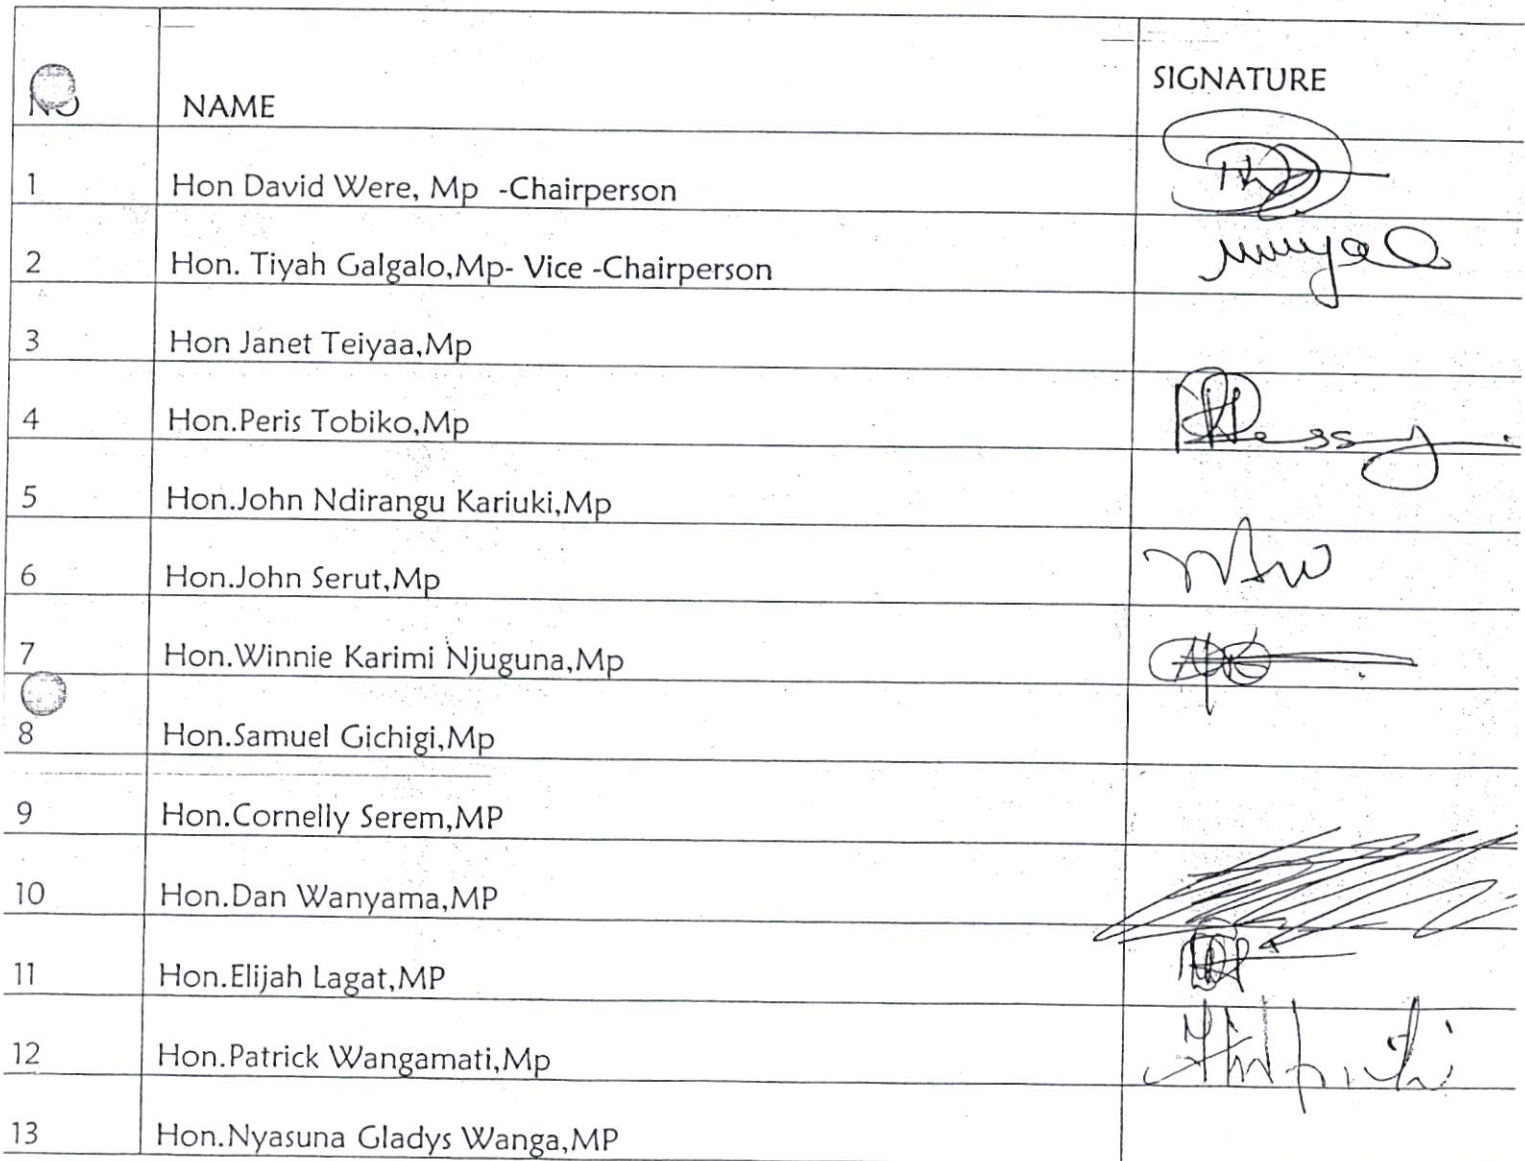 NO NAME SIGNATURE
1 Hon David Were, Mp -Chairperson
2 Hon. Tiyah Galgalo,Mp- Vice -Chairperson
3 Hon Janet Teiyaa,Mp
4 Hon.Peris Tobiko,Mp
5 Hon.John Ndirangu Kariuki,Mp
6 Hon.John Serut,Mp
7 Hon.Winnie Karimi Njuguna,Mp
8 Hon.Samuel Gichigi,Mp
9 Hon.Cornelly Serem,MP
10 Hon.Dan Wanyama,MP
11 Hon.Elijah Lagat,MP
12 Hon.Patrick Wangamati,Mp
13 Hon.Nyasuna Gladys Wanga,MP